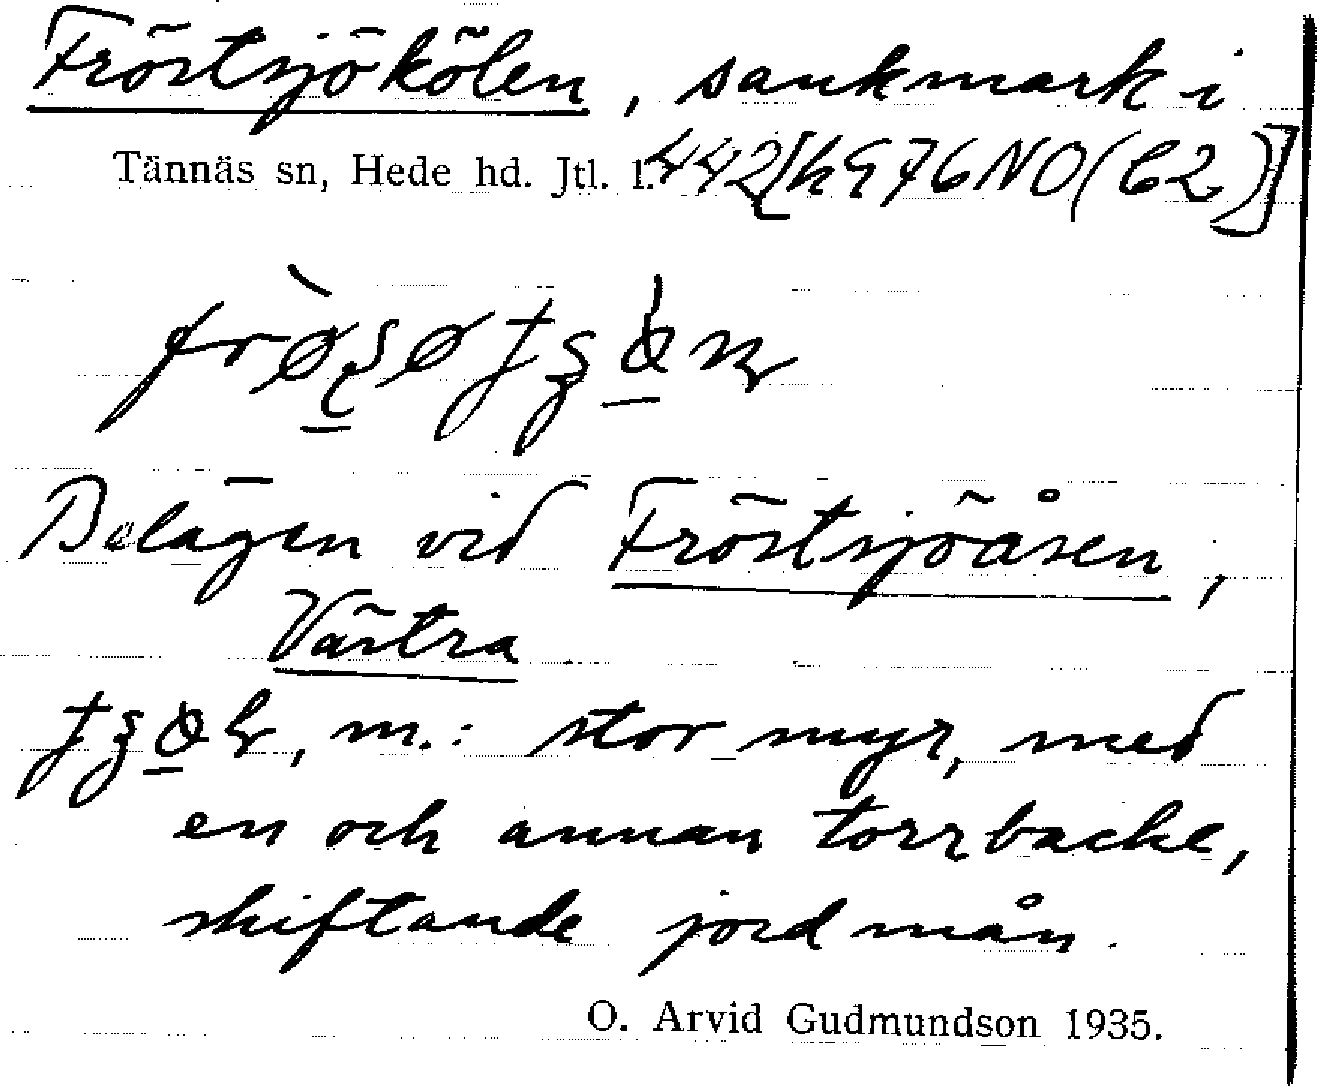 Fröstsjökölen, sankmark i
Tännäs sn, Hede hd. Jtl. l. 442[h976NO(C2)]
Belägen vid Fröstsjöåsen,
Västra
m.: stor myr, med
en och annan torrbacke,
skiftande jordmån.
O. Arvid Gudmundson 1935.